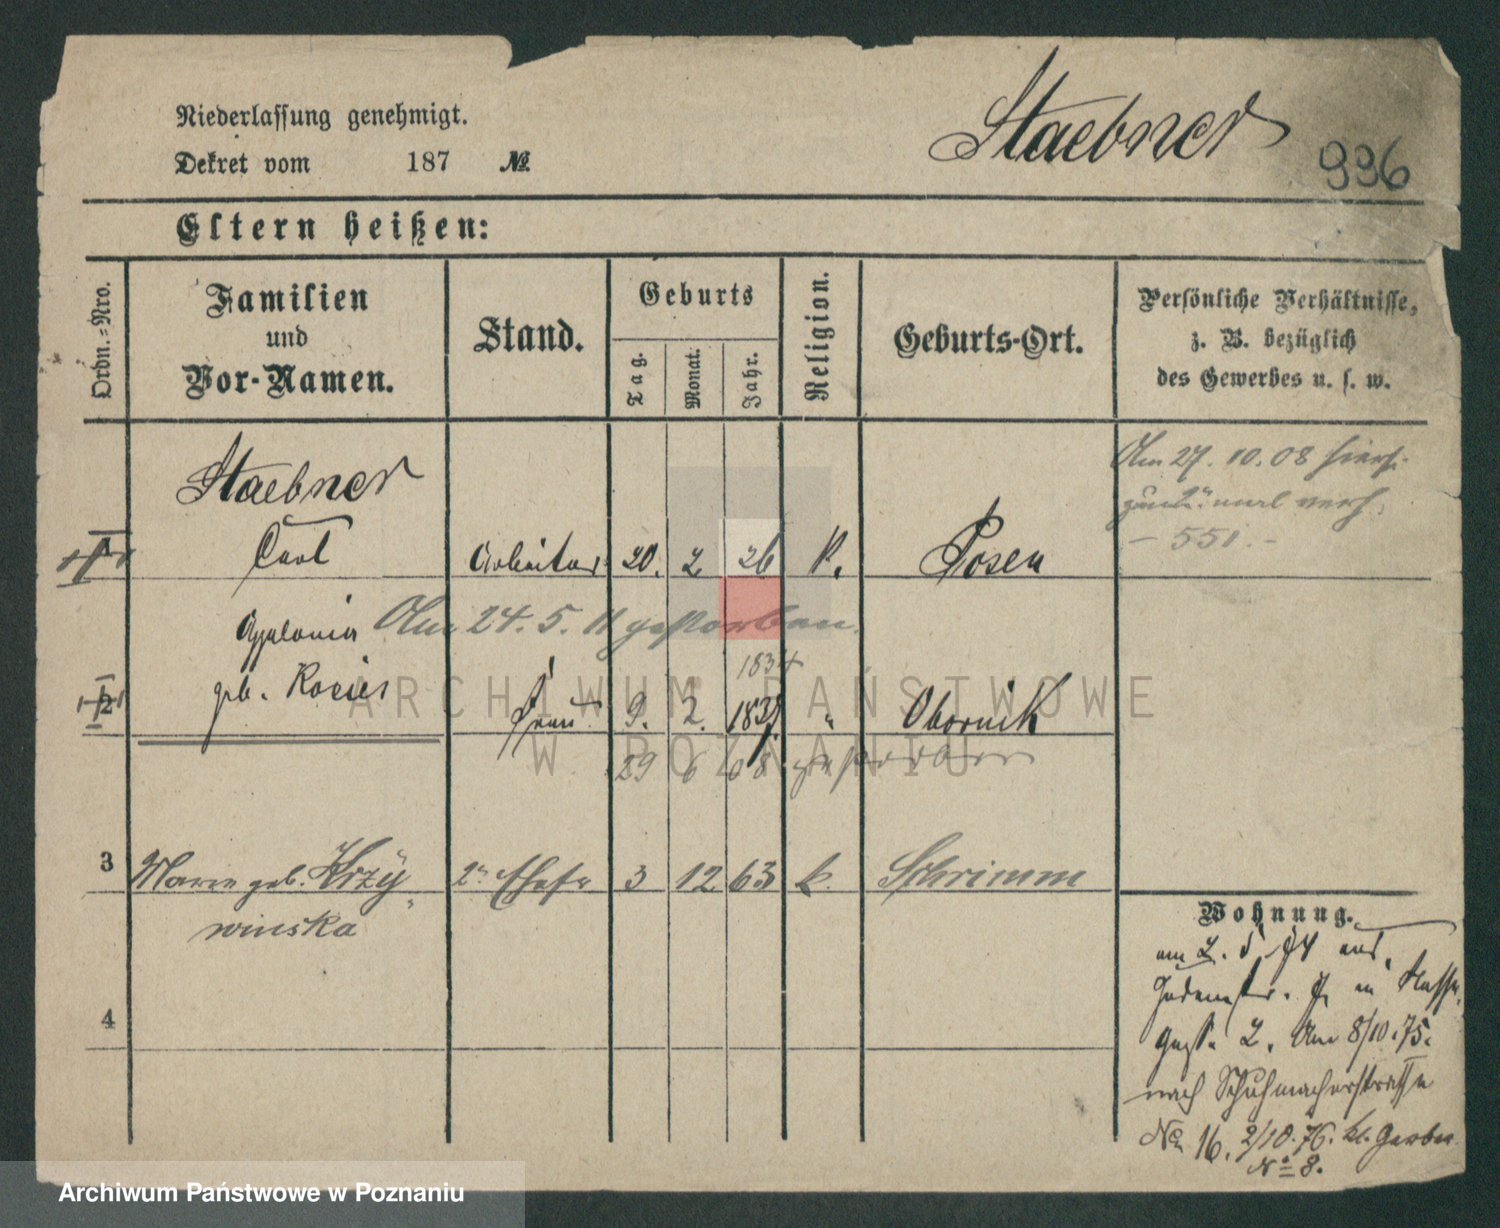 Niederlassung genehmigt.
Dekret vom 187 №
Staebner
996
Eltern heißen:
Ordn.-Nro.
Familien
und
Vor-Namen.
Stand.
Geburts
Tag.
Monat.
Jahr.
Religion.
Geburts-Ort.
Persönliche Verhältnisse,
z. B. bezüglich
des Gewerbes u. s. w.
Staebner
1 Carl Arbeiter 20. 2 26 K. Posen
Am 27. 10. 08
verh.
– 551. –
Am 24. 5. 11 gestorben.
Apolonia
geb.
1834
2 Frau 9. 2. 1837 " Obornik
29 6 08 gestorben
3 Marie geb. Krzy-
winska
2te Ehefr 3 12 63 k. Schrimm
4
Wohnung.
am 2. 5 74 aus
Judenstr. in
2. Am 8/10.75.
nach Schuhmacherstrasse
No 16. 2/10.76. kl. Gerber
№ 8.
ARCHIWUM PAŃSTWOWE
W POZNANIU
Archiwum Państwowe w Poznaniu